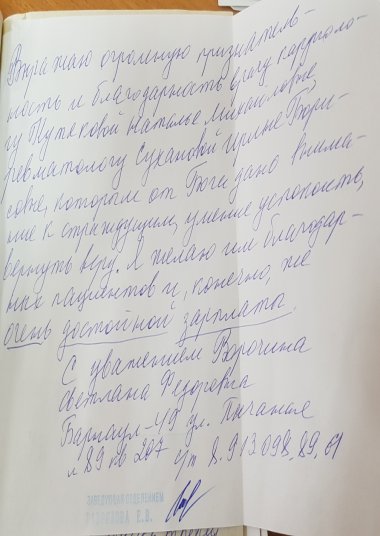 Выражаю огромную признатель-
ность и благодарность врачу кардиоло-
гу Путяковой Наталье Михайловне,
ревматологу Сухановой Ирине Бори-
совне, которым от Бога дано внима-
ние к страждущим, умение успокоить,
вернуть веру. Я желаю им благодар-
ных пациентов и, конечно, же
очень достойной зарплаты.
С уважением Ворочина
Светлана Федоровна
Барнаул-49 ул.
д 89 кв 207 с/т 8.913 098.89.61
ЗАВЕДУЮЩАЯ ОТДЕЛЕНИЕМ
Е.В.